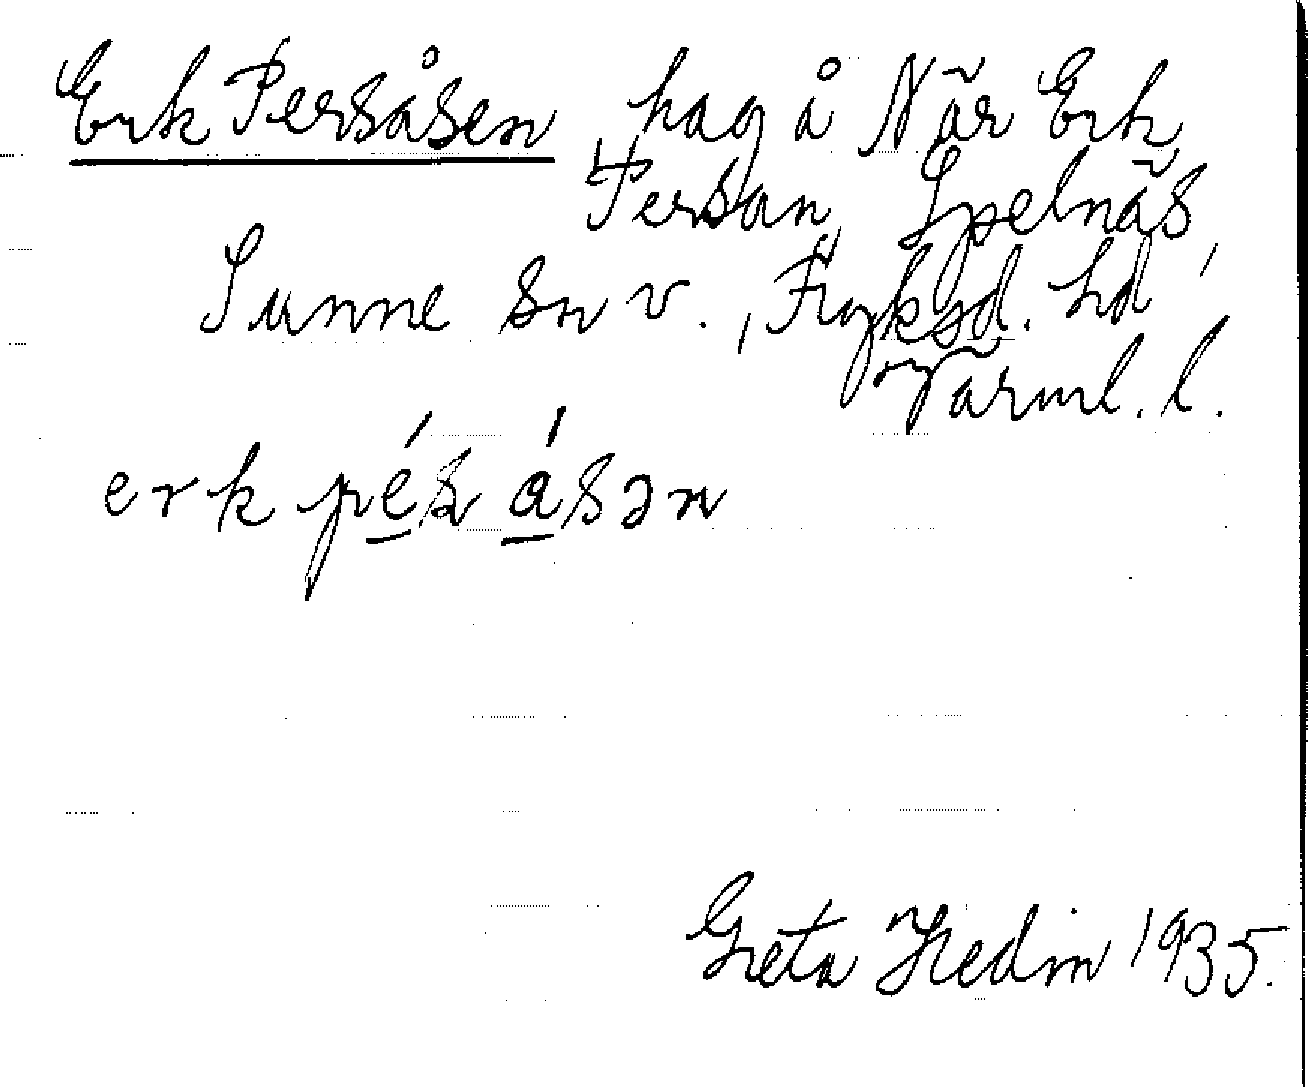 Erk Persåsen, hag å När Erk
Persan, Spelnäs,
Sunne sn v., Fryksd. hd,
Värml. l.
erk pés ásən
Greta Hedin 1935.